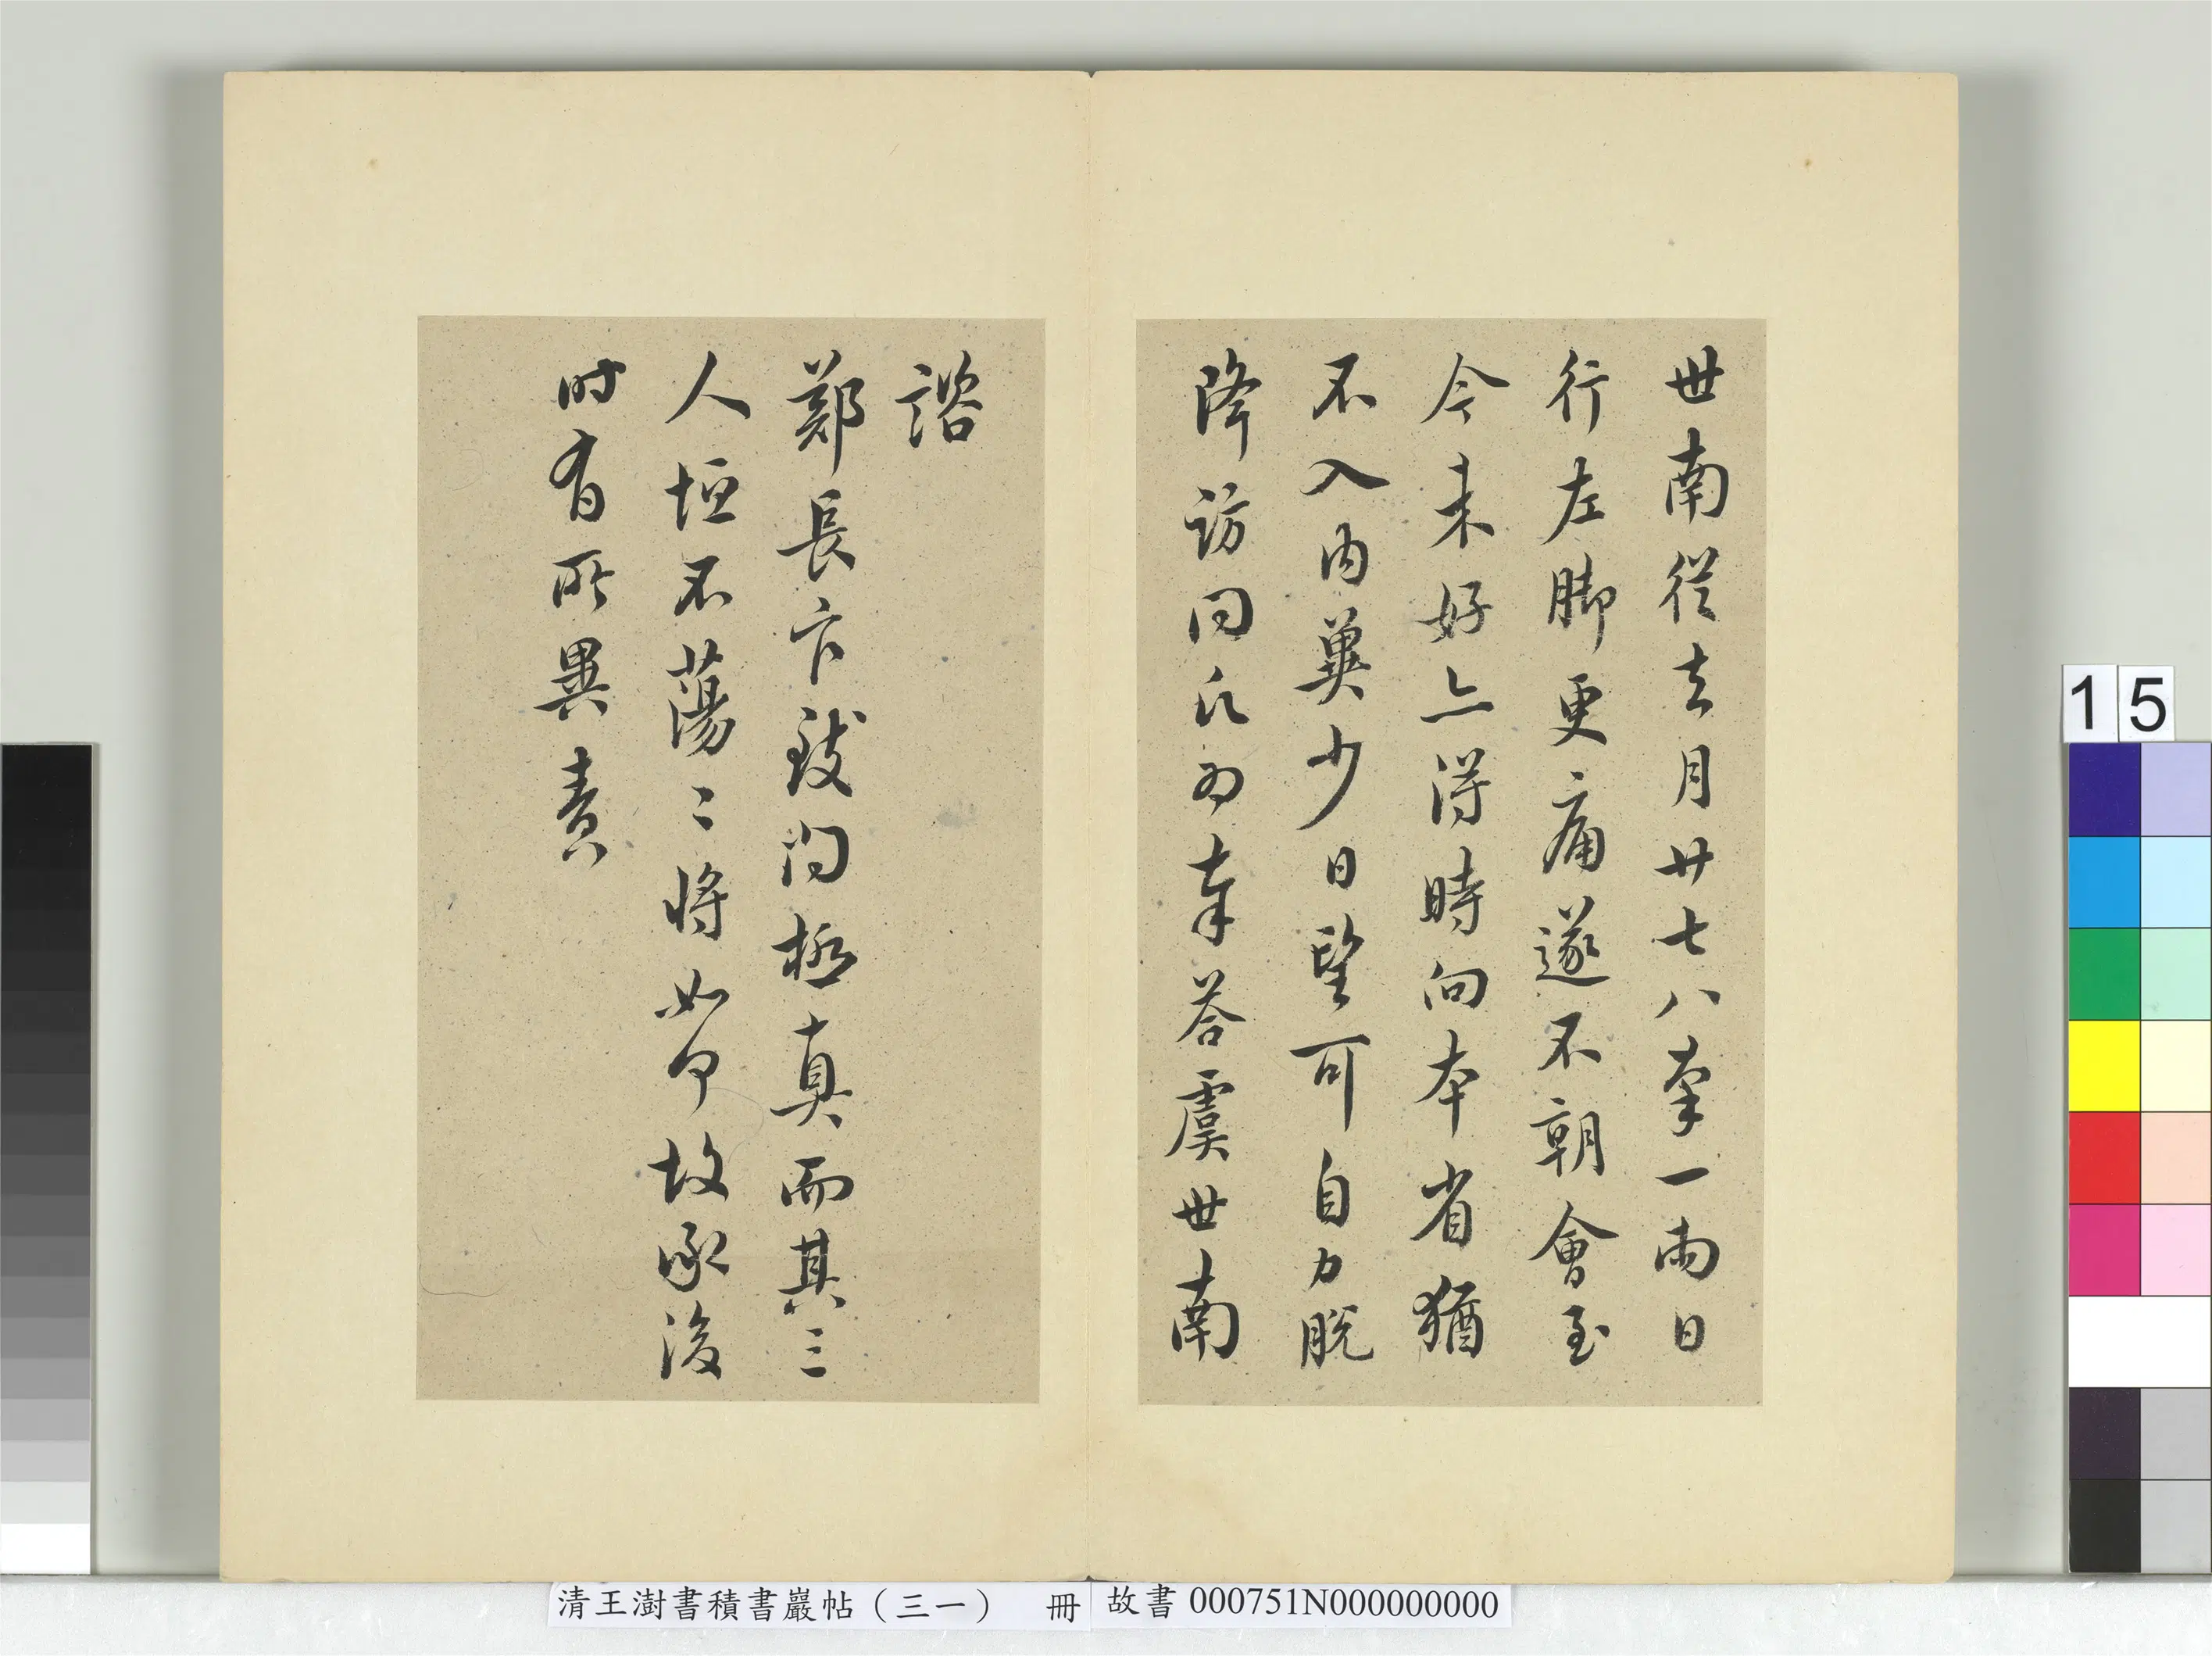 世南從去月廿七八率一兩日
行左脚更痛遂不朝會至
今未好亦得時向本省猶
不入内冀少日望可自力脱
降訪問氏為奉荅虞世南
諮
鄭長官致問極真而其三
人恒不蕩〻將如何故承後
時有所異責
15
清王澍書積書巖帖（三一）　冊
故書000751N000000000